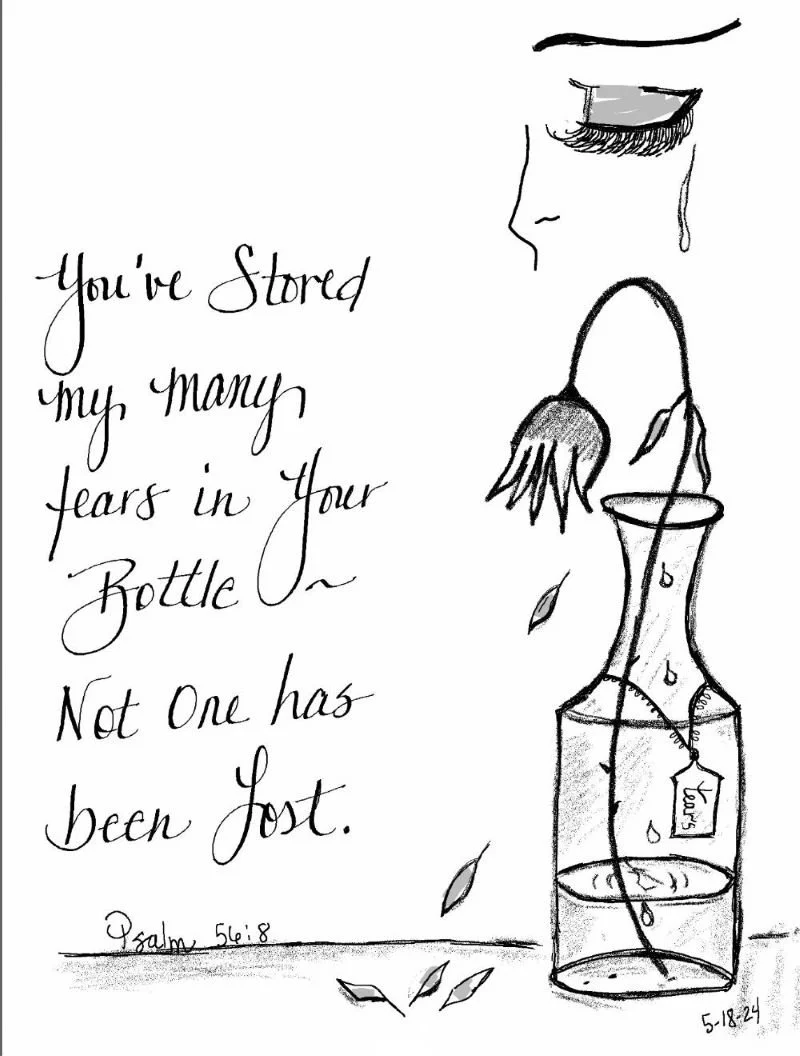 You've Stored
my many
tears in Your
Bottle ~
Not One has
been Lost.
Psalm 56:8
Tears
5-18-24